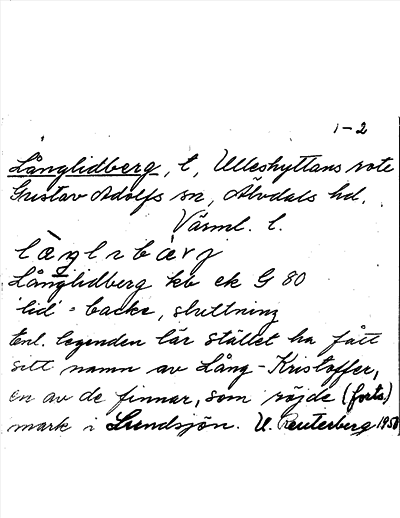 1-2
Långlidberg, t, Ulleshyttans rote
Gustav Adolfs sn, Älvdals hd.
Värml. l.
Långlidberg kb ek G 80
'lid' = backe, sluttning
Enl. legenden lär stället ha fått
sitt namn av Lång-Kristoffer,
en av de finnar, som röjde (forts)
mark i Lundsjön. U. Reuterberg 1950